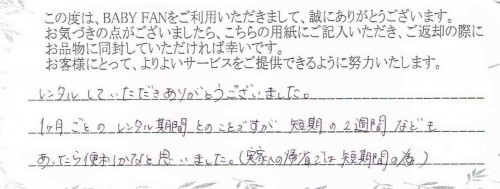 この度は、BABY FANをご利用いただきまして、誠にありがとうございます。
お気づきの点がございましたら、こちらの用紙にご記入いただき、ご返却の際に
お品物に同封していただければ幸いです。
お客様にとって、よりよいサービスをご提供できるように努力いたします。
レンタルしていただきありがとうございました。
1ヶ月ごとのレンタル期間とのことですが、短期の2週間なども
あったら便利かなと思いました。(実家への帰省では短期間の為)